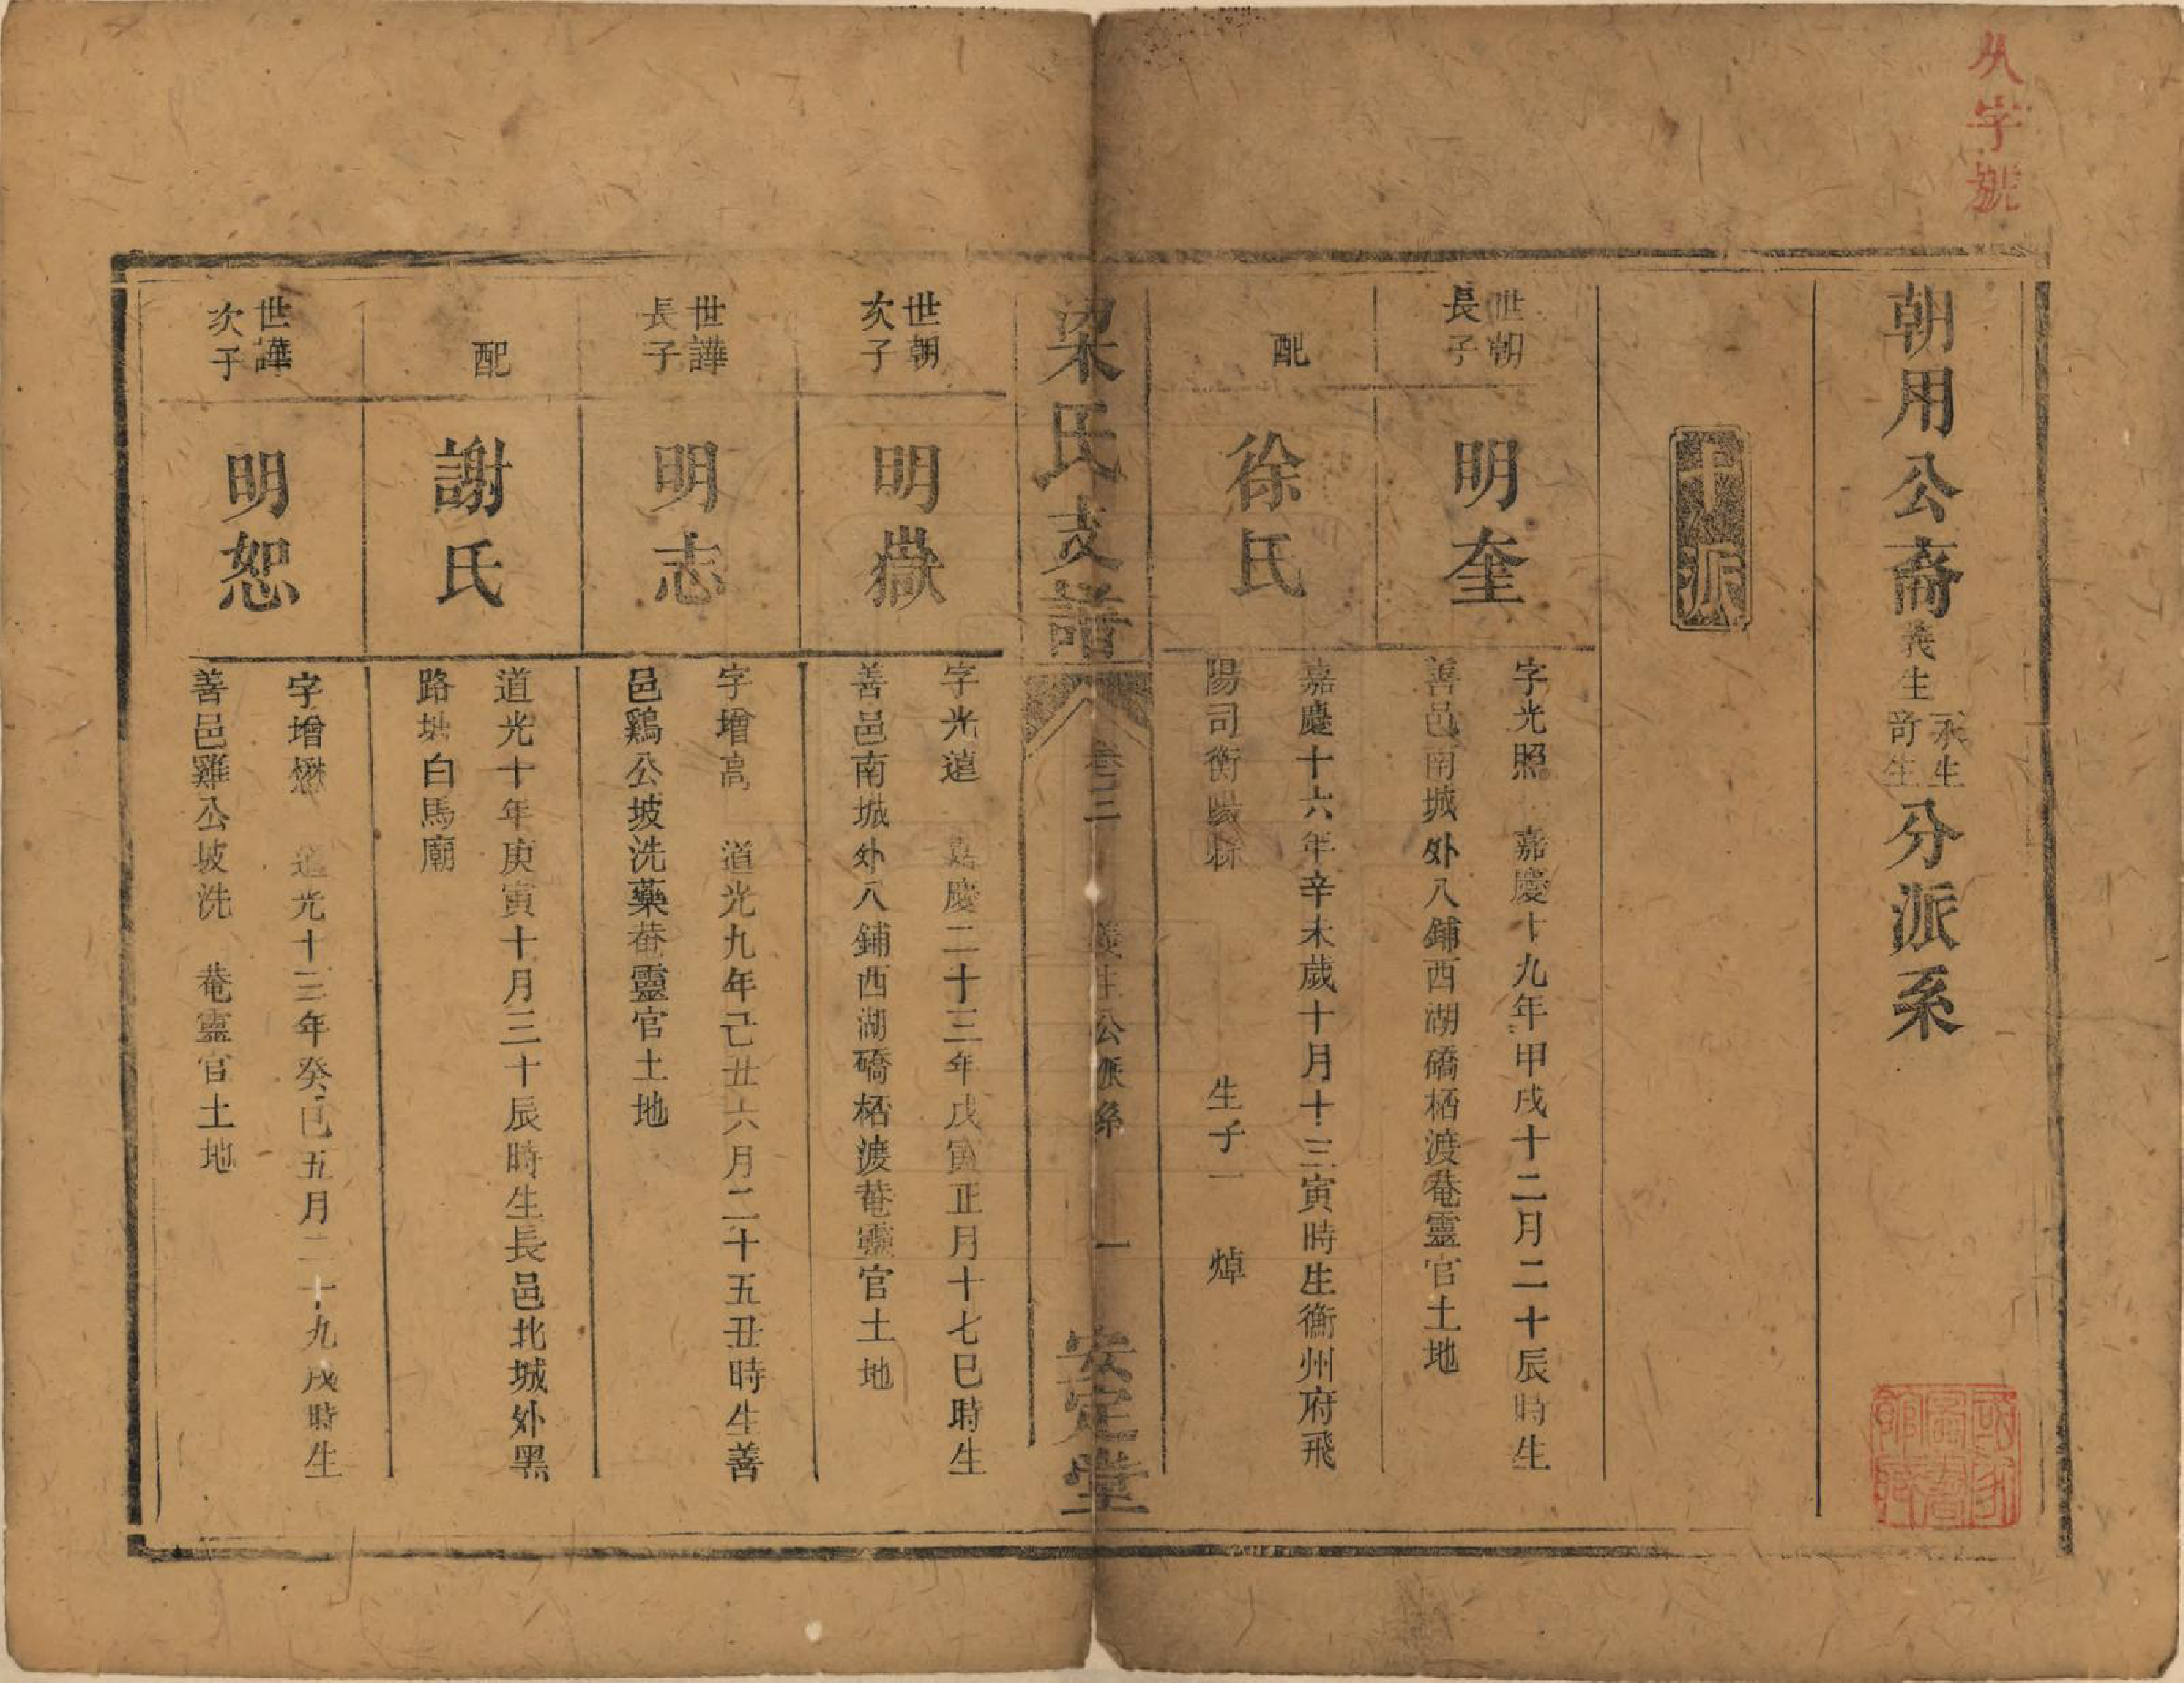 字號
朝用公裔義生永生奇生分派系
十派
世朝長子
明奎
字光照 嘉慶十九年甲戌十二月二十辰時生
善邑南城外八鋪西湖礄栢渡菴靈官土地
配
徐氏
嘉慶十六年辛未歲十月十三寅時生衡州府飛
陽司衡陽縣 生子一 焯
梁氏支譜 卷三 義生公派系 一 安定堂
世朝次子
明嶽
字光遠 嘉慶二十三年戊寅正月十七巳時生
善邑南城外八鋪西湖礄栢渡菴靈官土地
世譁長子
明志
字增高 道光九年己丑六月二十五丑時生善
邑鷄公坡洗藥菴靈官土地
配
謝氏
道光十年庚寅十月三十辰時生長邑北城外黑
路塘白馬廟
世譁次子
明恕
字增懋 道光十三年癸巳五月二十九戌時生
善邑雞公坡洗 菴靈官土地
國家圖書館藏